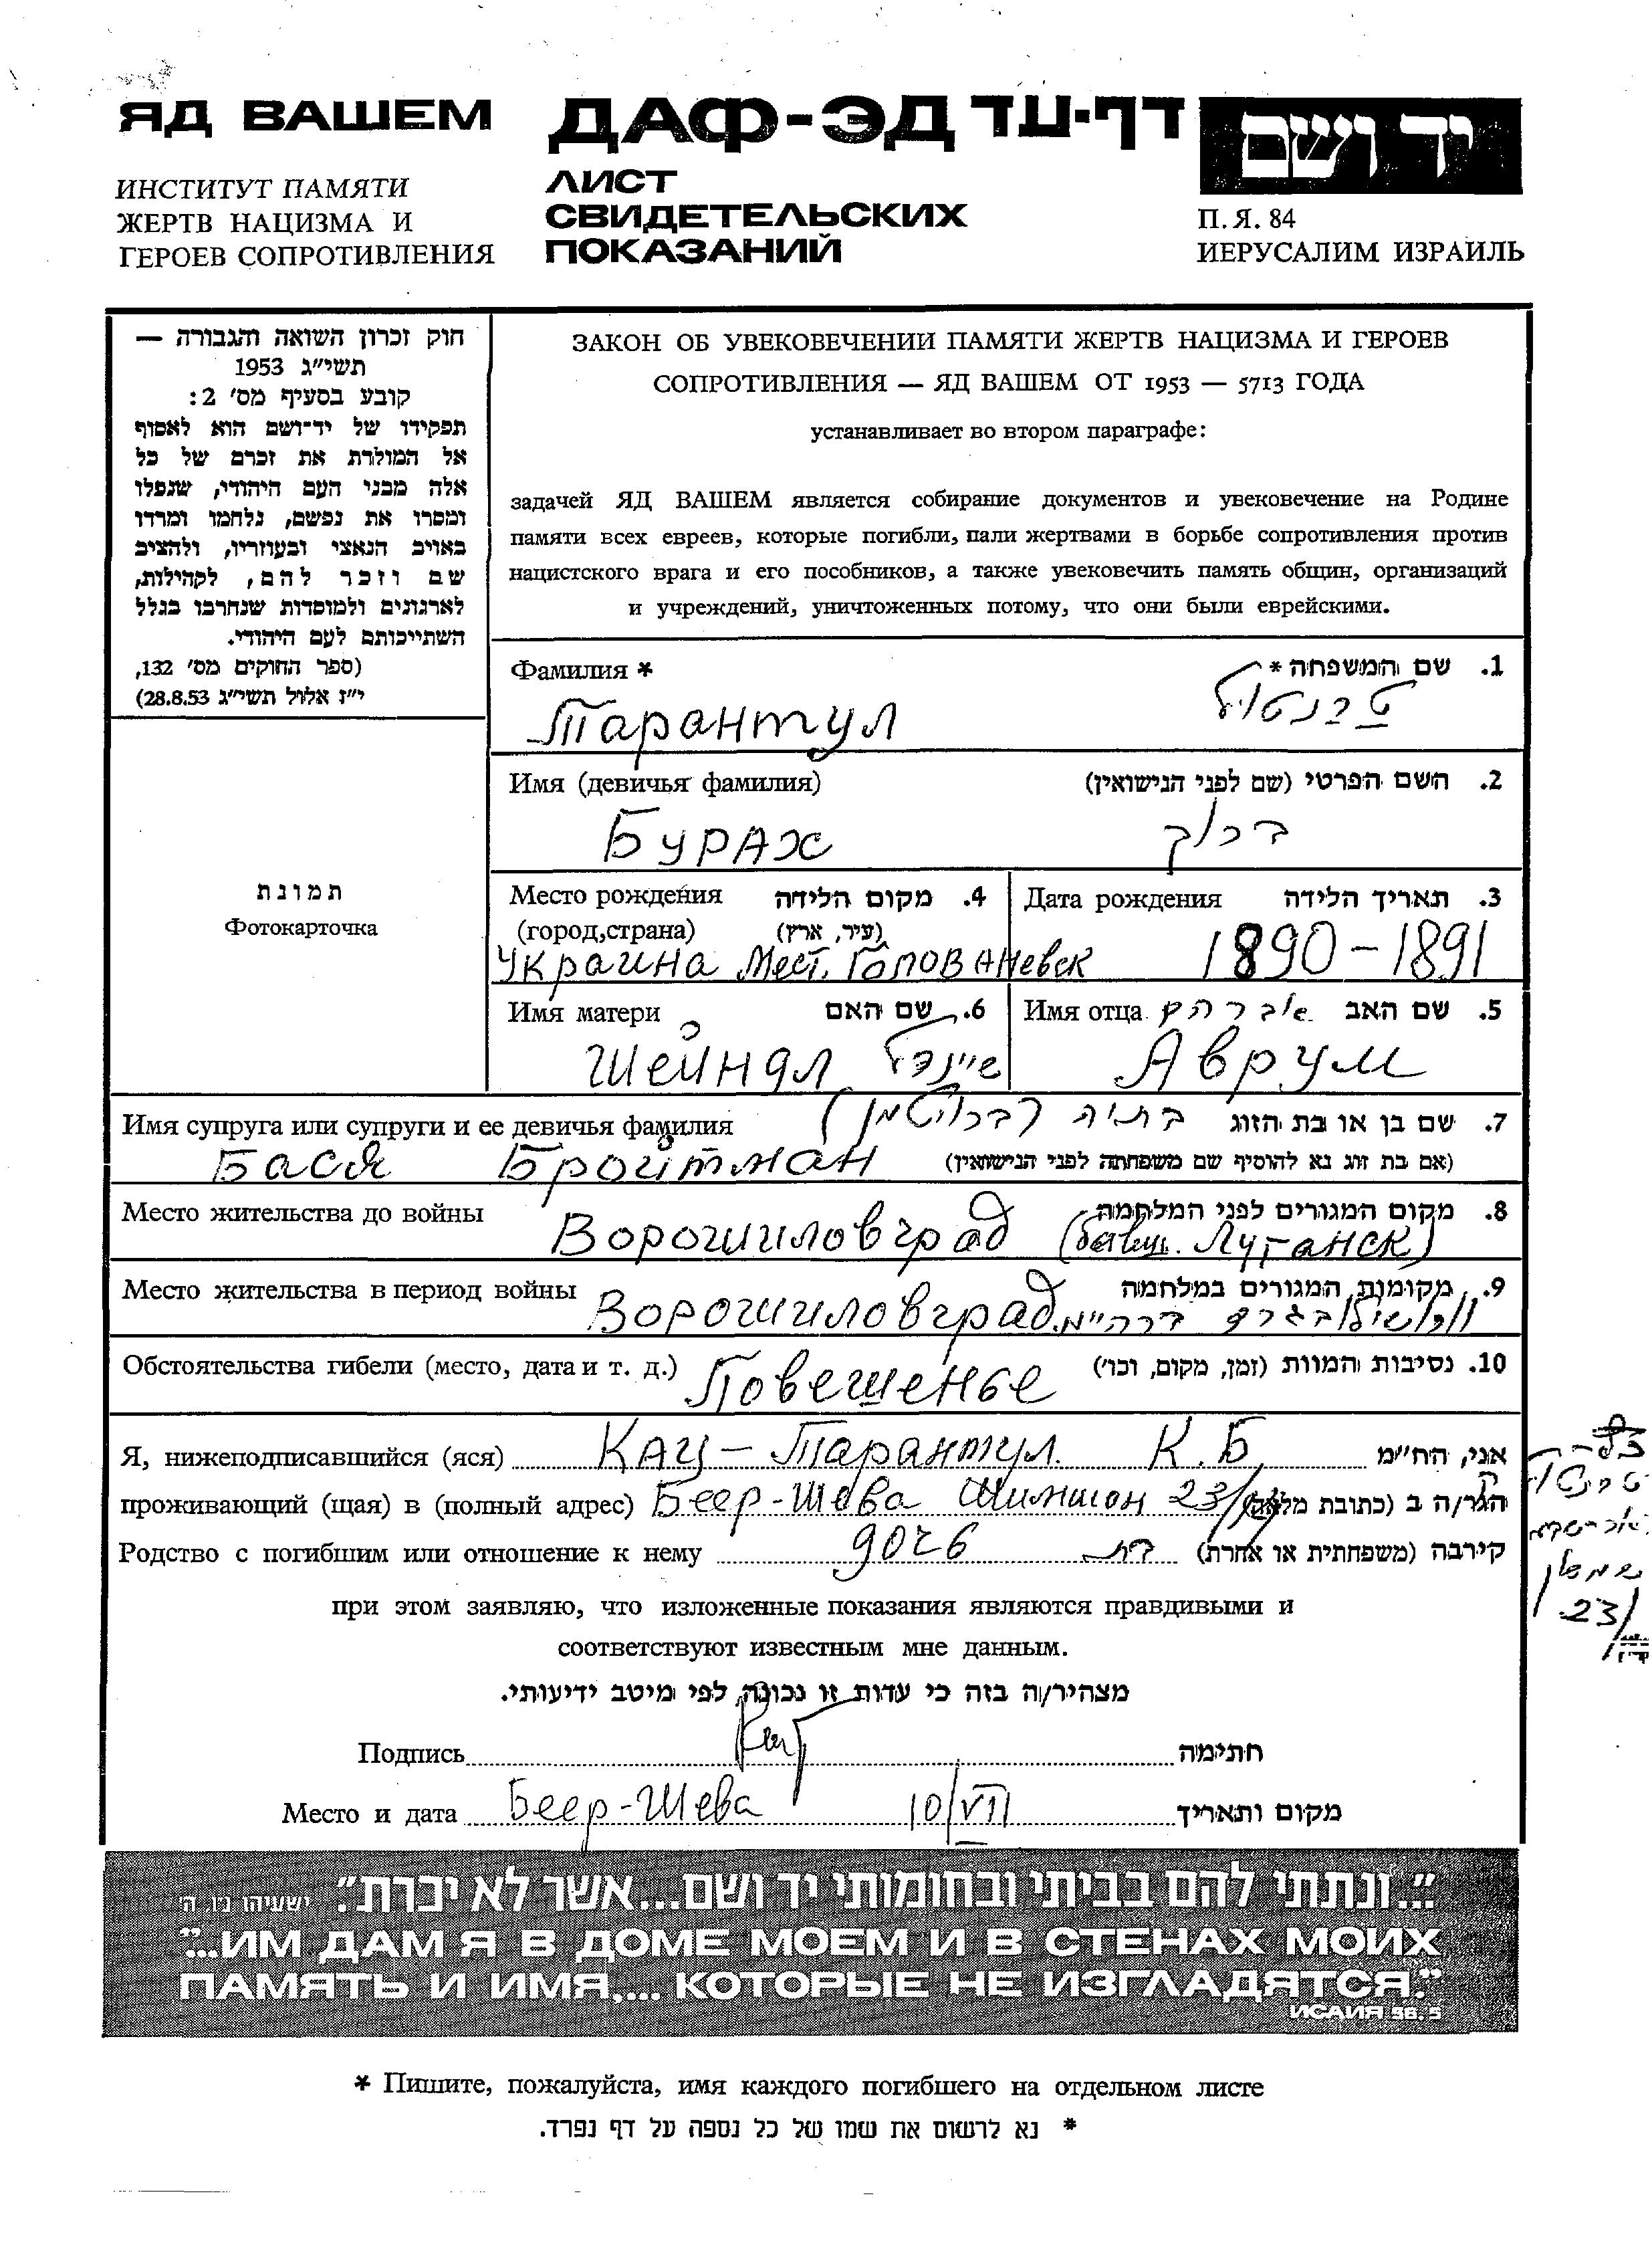 ЯД ВАШЕМ
ИНСТИТУТ ПАМЯТИ
ЖЕРТВ НАЦИЗМА И
ГЕРОЕВ СОПРОТИВЛЕНИЯ
ДАФ-ЭД דף-עד
ЛИСТ
СВИДЕТЕЛЬСКИХ
ПОКАЗАНИЙ
יד ושם
П. Я. 84
ИЕРУСАЛИМ ИЗРАИЛЬ
חוק זכרון השואה והגבורה —
תשי"ג 1953
קובע בסעיף מס' 2:
תפקידו של יד-ושם הוא לאסוף
אל המולדת את זכרם של כל
אלה מבני העם היהודי, שנפלו
ומסרו את נפשם, נלחמו ומרדו
באויב הנאצי ובעוזריו, ולהציב
שם וזכר להם, לקהילות,
לארגונים ולמוסדות שנחרבו בגלל
השתייכותם לעם היהודי.
(ספר החוקים מס' 132,
י"ז אלול תשי"ג 28.8.53)
ЗАКОН ОБ УВЕКОВЕЧЕНИИ ПАМЯТИ ЖЕРТВ НАЦИЗМА И ГЕРОЕВ
СОПРОТИВЛЕНИЯ — ЯД ВАШЕМ ОТ 1953 — 5713 ГОДА
устанавливает во втором параграфе:
задачей ЯД ВАШЕМ является собирание документов и увековечение на Родине
памяти всех евреев, которые погибли, пали жертвами в борьбе сопротивления против
нацистского врага и его пособников, а также увековечить память общин, организаций
и учреждений, уничтоженных потому, что они были еврейскими.
Фамилия * 1. שם המשפחה *
Тарантул טרנטול
Имя (девичья фамилия) 2. השם הפרטי (שם לפני הנישואין)
Бурах ברוך
תמונת
Фотокарточка
Место рождения 4. מקום הלידה
(город,страна) (עיר, ארץ)
Украина Мест. Голованевск
Дата рождения 3. תאריך הלידה
1890-1891
Имя матери 6. שם האם
Шейндл שיינדל
Имя отца 5. שם האב אברהם
Аврум
Имя супруга или супруги и ее девичья фамилия 7. שם בן או בת הזוג בתיה (ברויטמן)
Бася Бройтман (אם בת זוג נא להוסיף שם משפחתה לפני הנישואין)
Место жительства до войны 8. מקום המגורים לפני המלחמה
Ворошиловград (бывш. Луганск)
Место жительства в период войны 9. מקומות המגורים במלחמה
Ворошиловград וורושילובגרד ברה"מ
Обстоятельства гибели (место, дата и т. д.) 10. נסיבות המוות (זמן, מקום, וכו')
Повешенье
Я, нижеподписавшийся (яся) Кац-Тарантул К.Б אני, הח"מ
проживающий (щая) в (полный адрес) Беер-Шева Шимшон 23/ הגר/ה ב (כתובת מלאה)
Родство с погибшим или отношение к нему дочь בת קירבה (משפחתית או אחרת)
כץ-
טרנטול
באר שבע
שמשון
23/
при этом заявляю, что изложенные показания являются правдивыми и
соответствуют известным мне данным.
מצהיר/ה בזה כי עדות זו נכונה לפי מיטב ידיעותי.
Подпись חתימה
Место и дата Беер-Шева 10/VII מקום ותאריך
"...ונתתי להם בביתי ובחומותי יד ושם...אשר לא יכרת". ישעיהו נ"ו, ה'
"...ИМ ДАМ Я В ДОМЕ МОЕМ И В СТЕНАХ МОИХ
ПАМЯТЬ И ИМЯ,... КОТОРЫЕ НЕ ИЗГЛАДЯТСЯ."
ИСАИЯ 56.5
* Пишите, пожалуйста, имя каждого погибшего на отдельном листе
* נא לרשום את שמו של כל נספה על דף נפרד.